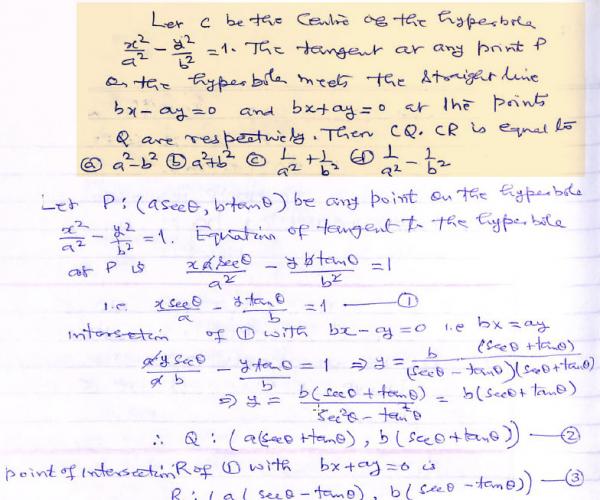 Let C be the Centre of the hyperbola
x²/a² - y²/b² = 1. The tangent at any point P
on the hyperbola meets the straight line
bx-ay=0 and bx+ay=0 at the points
Q are respectively. Then CQ. CR is equal to
ⓐ a²-b² ⓑ a²+b² ⓒ 1/a² + 1/b² ⓓ 1/a² - 1/b²
Let P: (a secθ, b tanθ) be any point on the hyperbola
x²/a² - y²/b² = 1. Equation of tangent to the hyperbola
at P is x a secθ/a² - y b tanθ/b² = 1
i.e x secθ/a - y tanθ/b = 1 — ①
intersection of ① with bx-ay=0 i.e bx=ay
a y secθ/a b - y tanθ/b = 1 ⇒ y = b (secθ+tanθ)/(secθ-tanθ)(secθ+tanθ)
⇒ y = b(secθ+tanθ)/sec²θ-tan²θ = b(secθ+tanθ)
∴ Q: (a(secθ+tanθ), b(secθ+tanθ)) — ②
point of intersection R of ① with bx+ay=0 is
R: (a(secθ-tanθ), b(secθ-tanθ)) — ③